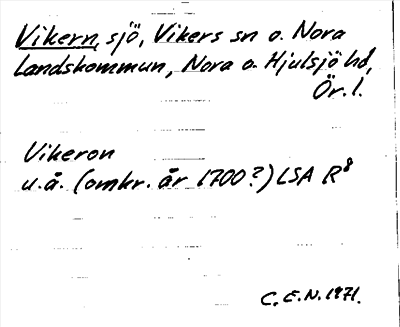 Vikern, sjö, Vikers sn o. Nora
landskommun, Nora o. Hjulsjö hd,
Ör. l.
Vikeron
u.å. (omkr. år 1700?) LSA R8
C.E.N. 1971.